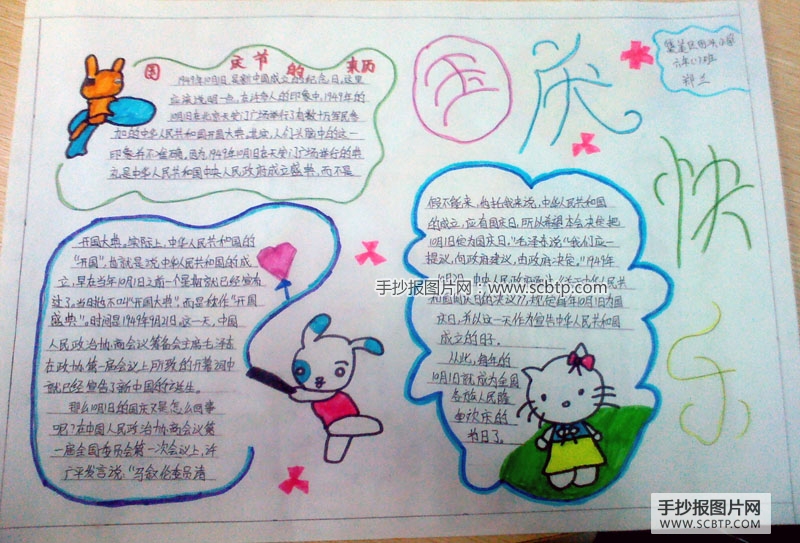 国庆节的来历
1949年10月1日,是新中国成立的纪念日。这里
应该说明一点,在许多人的印象中,1949年的
10月1日在北京天安门广场举行了有数十万军民参
加的中华人民共和国开国大典。其实,人们头脑中的这一
印象并不准确。因为,1949年10月1日在天安门广场举行的典
礼是中华人民共和国中央人民政府成立盛典,而不是
开国大典。实际上,中华人民共和国的
“开国”,也就是说中华人民共和国的成
立,早在当年10月1日之前一个星期就已经宣布
过了。当时也不叫“开国大典”,而是称作“开国
盛典”。时间是1949年9月21日。这一天,中国
人民政治协商会议筹备会主席毛泽东
在政协第一届会议上所致的开幕词中
就已经宣告了新中国的诞生。
那么10月1日的国庆又是怎么回事
呢?在中国人民政治协商会议第
一届全国委员会第一次会议上,许
广平发言说:“马叙伦委员请
国庆
快
乐
六年(1)班
假不能来,
中华人民共和国
的成立,应有国庆日,所以希望本会决定把
10月1日定为国庆日。”毛泽东说“我们应一
提议,向政府建议,由政府决定。”1949年
规定每年10月1日为国
庆日,并以这一天作为宣告中华人民共和国
成立的日子。
从此,每年的
10月1日就成为全国
各族人民隆
重欢庆的
节日了。
手抄报图片网:www.scbtp.com
手抄报图片网
WWW.SCBTP.COM